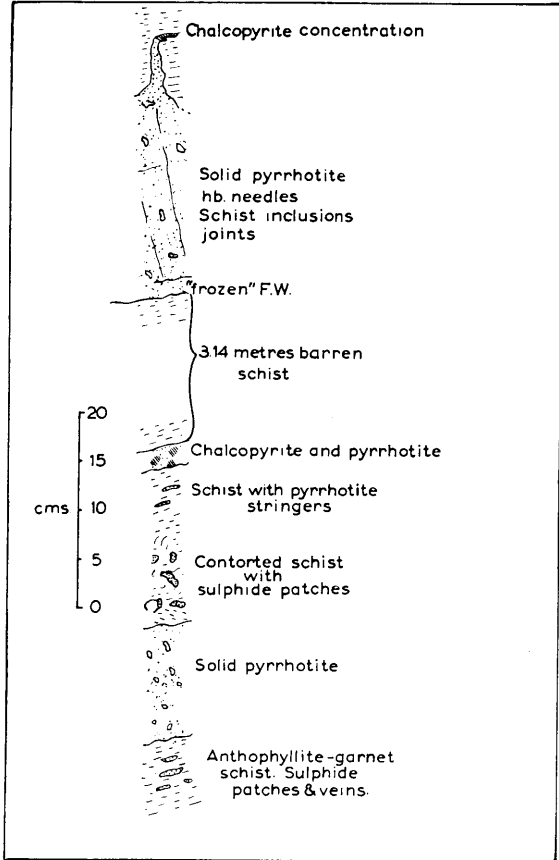 Chalcopyrite concentration
Solid pyrrhotite
hb. needles
Schist inclusions
joints
"frozen" F.W.
3.14 metres barren
schist
20
Chalcopyrite and pyrrhotite
15
Schist with pyrrhotite
stringers
cms
10
5
Contorted schist
with
sulphide patches
0
Solid pyrrhotite
Anthophyllite-garnet
schist. Sulphide
patches & veins.